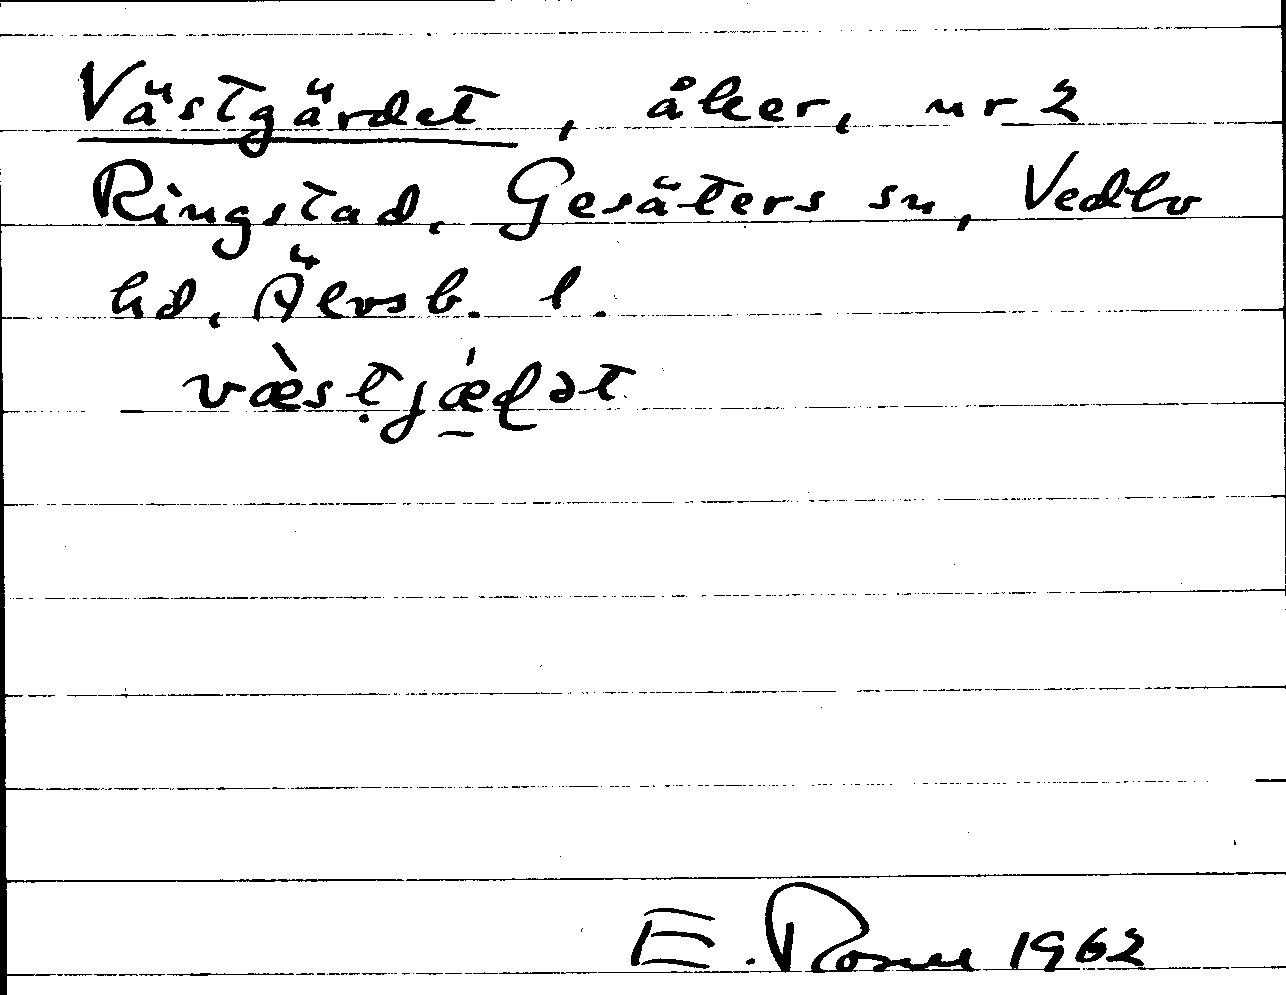 Västgärdet, åker, nr 2
Ringstad. Gesäters sn, Vedbo
hd, Älvsb. l.
væ̀stjǽ̣ḷət
E. Rosell 1962